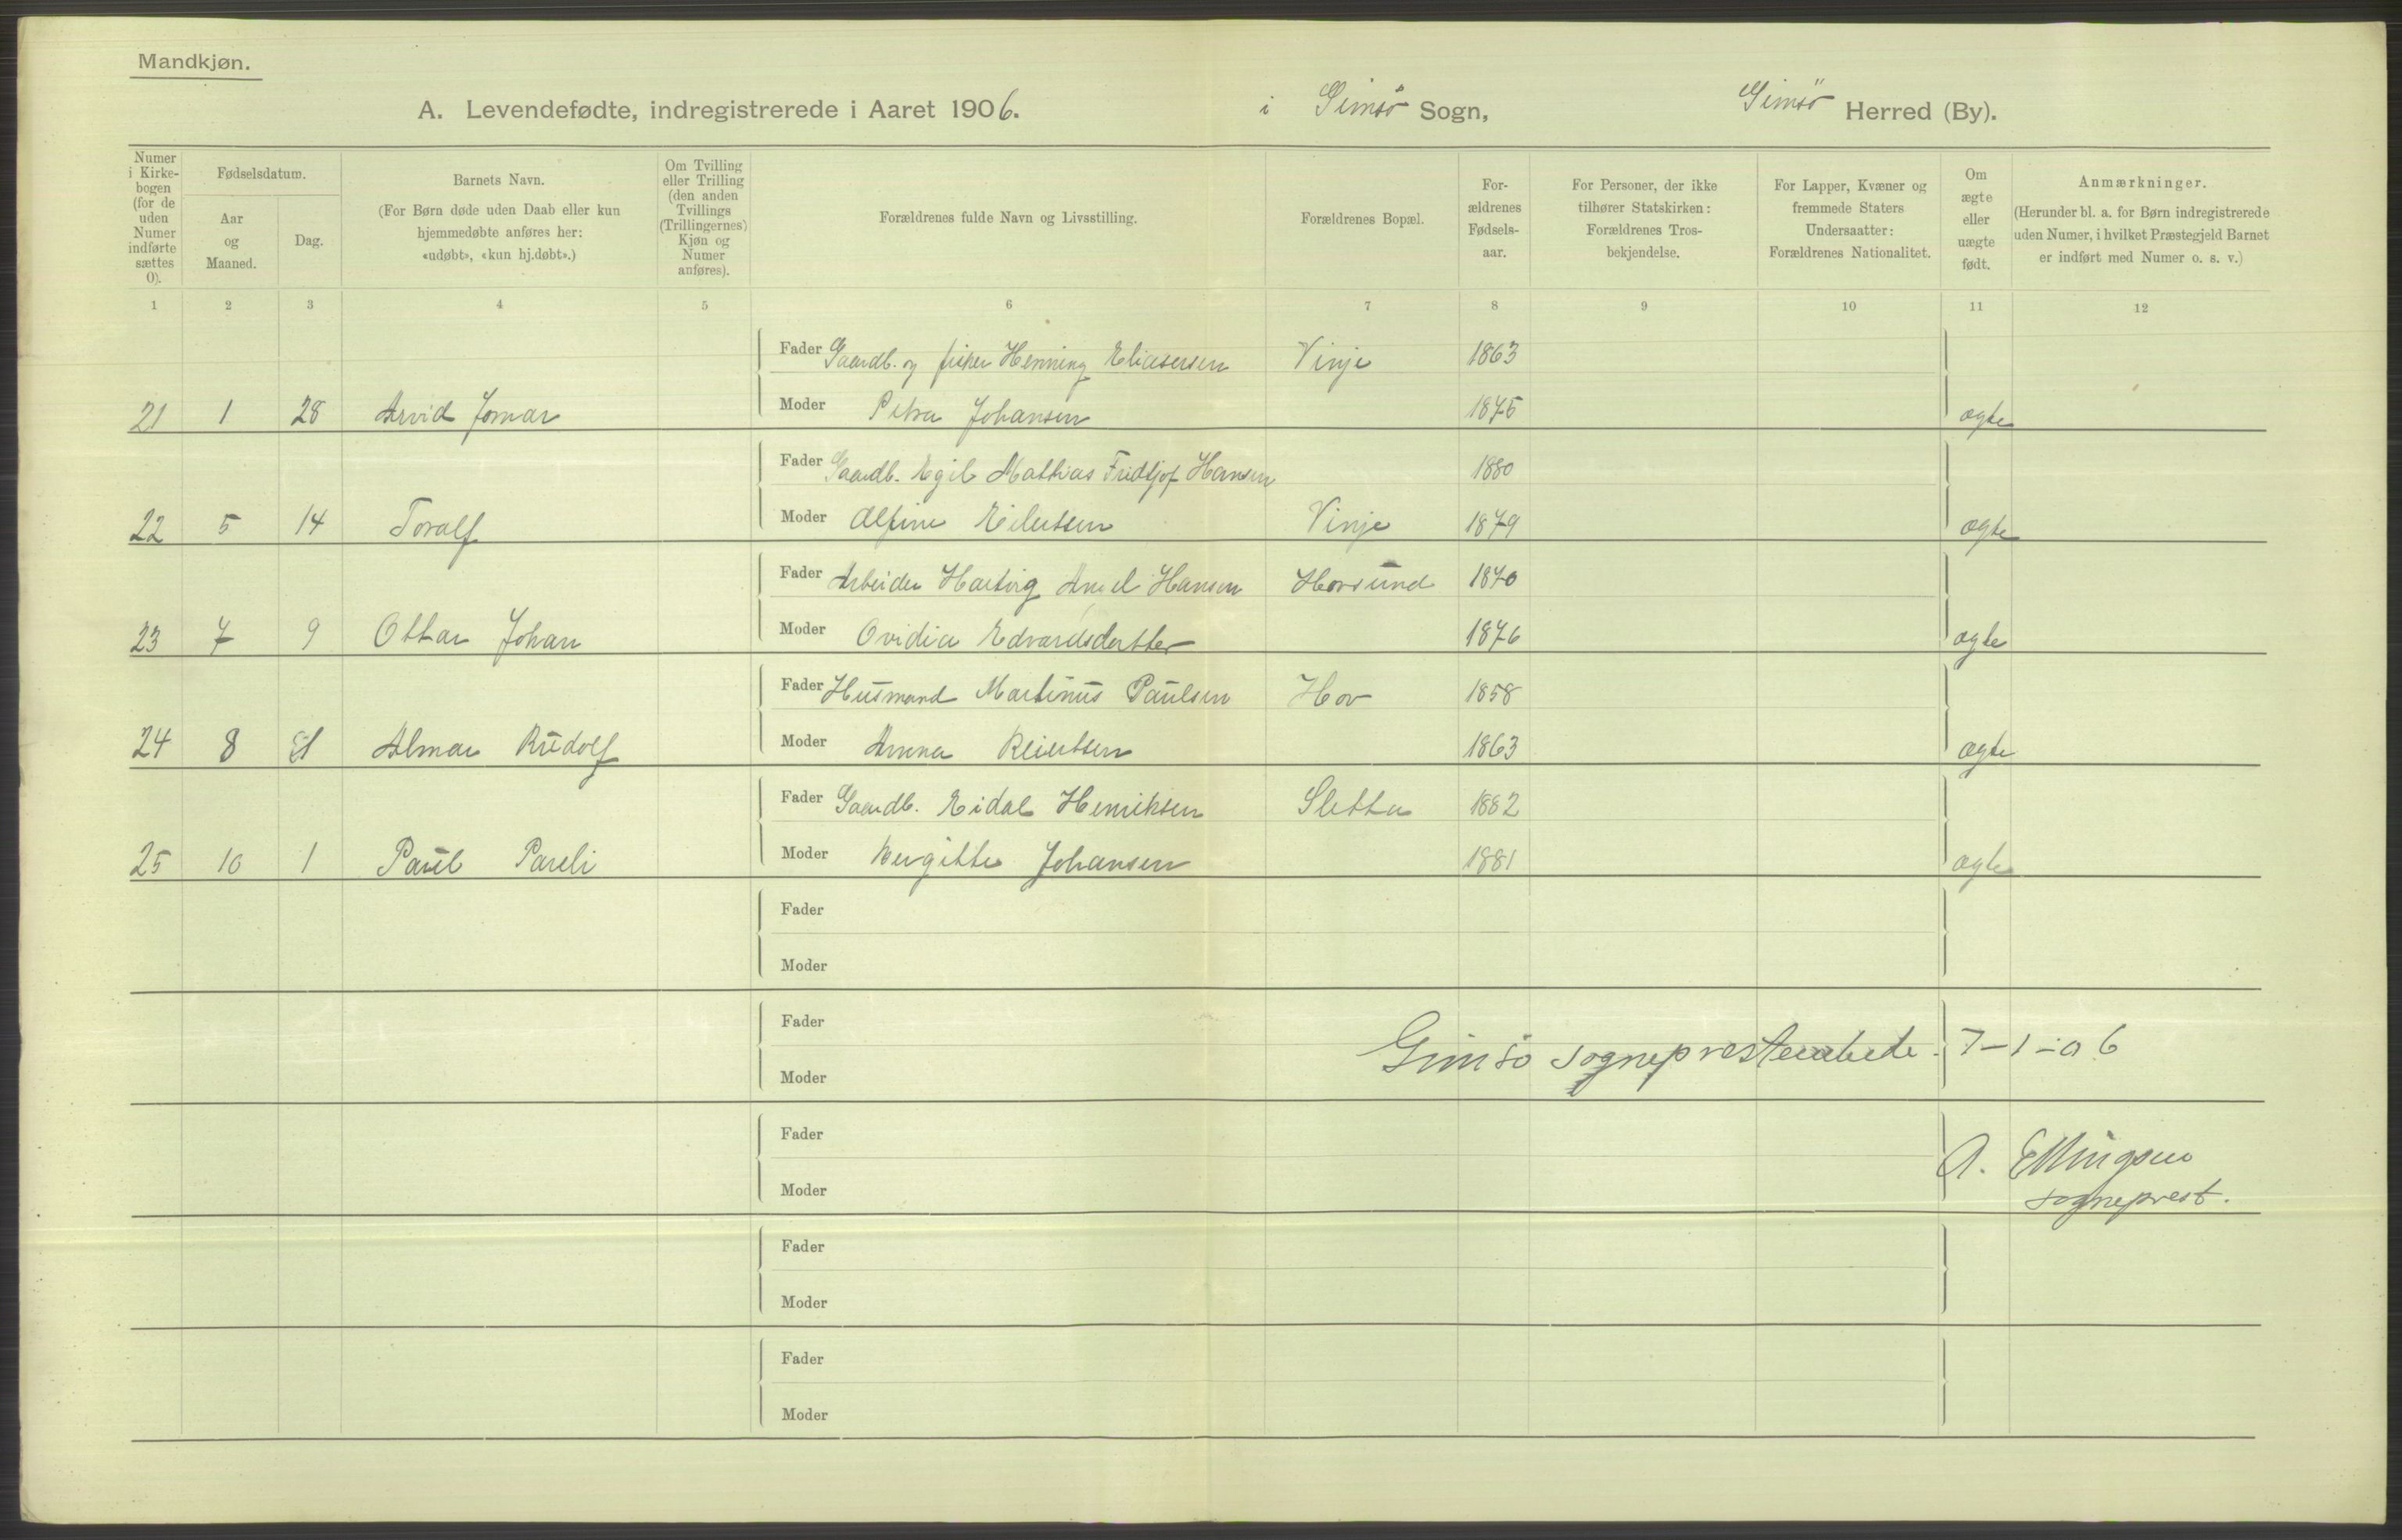 Mandkjøn.
A. Levendefødte, indregistrerede i Aaret 1906. i Gimsö Sogn, Gimsö Herred (By).
Numer i Kirke-bogen (for de uden Numer indførte sættes 0).
Fødselsdatum.
Aar og Maaned.
Dag.
Barnets Navn.
(For Børn døde uden Daab eller kun
hjemmedøbte anføres her:
«udøbt», «kun hj.døbt».)
Om Tvilling
eller Trilling
(den anden
Tvillings
(Trillingernes)
Kjøn og
Numer
anføres).
Forældrenes fulde Navn og Livsstilling.
Forældrenes Bopæl.
For-
ældrenes
Fødsels-
aar.
For Personer, der ikke
tilhører Statskirken:
Forældrenes Tros-
bekjendelse.
For Lapper, Kvæner og
fremmede Staters
Undersaatter:
Forældrenes Nationalitet.
Om
ægte
eller
uægte
født.
Anmærkninger.
(Herunder bl. a. for Børn indregistrerede
uden Numer, i hvilket Præstegjeld Barnet
er indført med Numer o. s. v.)
1 2 3 4 5 6 7 8 9 10 11 12
Fader Gaardb. og fisker Henning Eliasersen Vinje 1863
21 1 28 Arvid Jomar Moder Petra Johansen 1875 ægte
Fader Gaardb. Egil Mathias Fridtjof Hansen 1880
22 5 14 Toralf Moder Alfine Eilertsen Vinje 1879 ægte
Fader Arbeider Hartvig Hansen Hovsund 1870
23 7 9 Ottar Johan Moder Ovidia Edvardsdatter 1876 ægte
Fader Husmand Martinus Paulsen Hov 1858
24 8 Almar Rudolf Moder Anna Reiertsen 1863 ægte
Fader Gaardb. Eidal Henriksen Sletta 1882
25 10 1 Paul Pareli Moder Bergitte Johansen 1881 ægte
Fader
Moder
Fader
Gimsö sogneprestembede 7-1-06
Moder
Fader
A. Ellingsen
Moder
sogneprest.
Fader
Moder
Fader
Moder